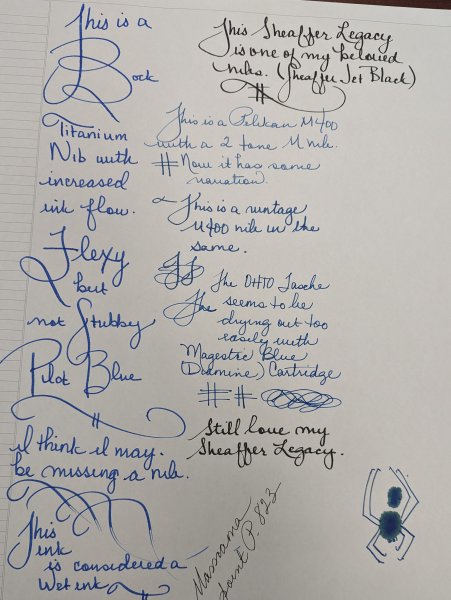 This is a
Bock
Titanium
Nib with
increased
ink flow.
Flexy
but
not Stubby
Pilot Blue
I think I may.
be missing a nib.
This
ink
is considered a
Wet ink
This Sheaffer Legacy
is one of my beloved
nibs. (Sheaffer Jet Black)
This is a Pelikan M400
with a 2 tone M nib.
Now it has some
variation.
This is a vintage
M400 nib in the
same.
The OHTO Tasche
The seems to be
drying out too
easily with
Magestic Blue
(Diamine) Cartridge
Still love my
Sheaffer Legacy.
point P. 823